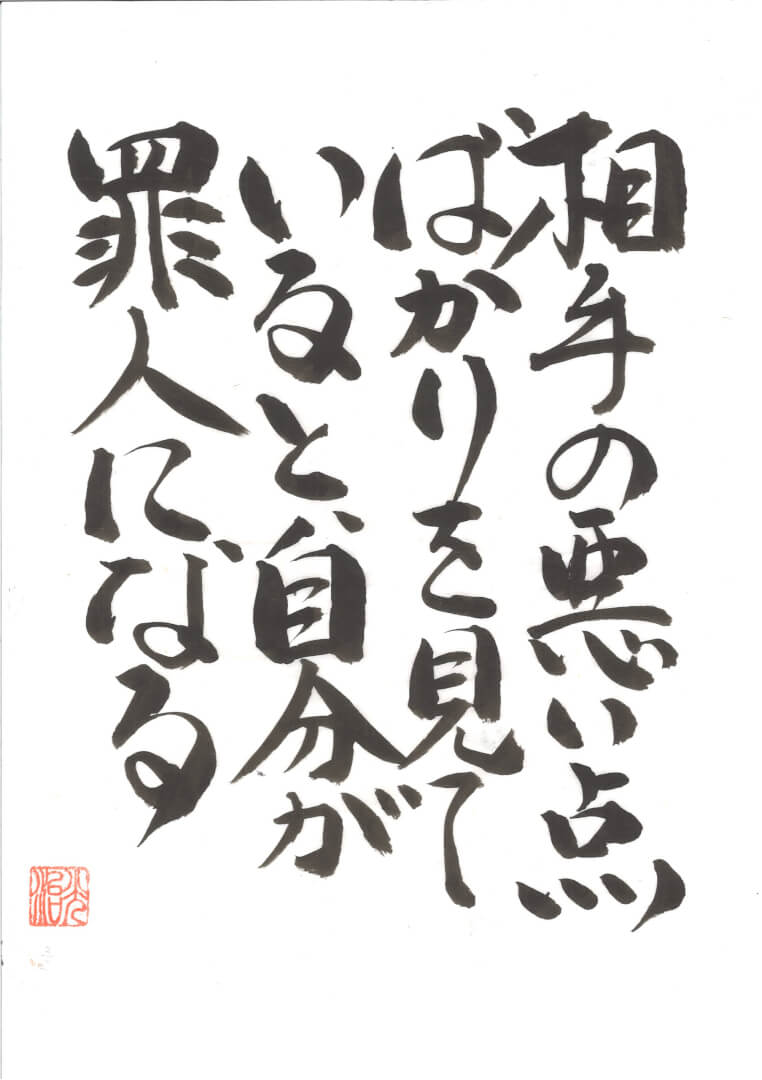 相手の悪い点
ばかりを見て
いると、自分が
罪人になる